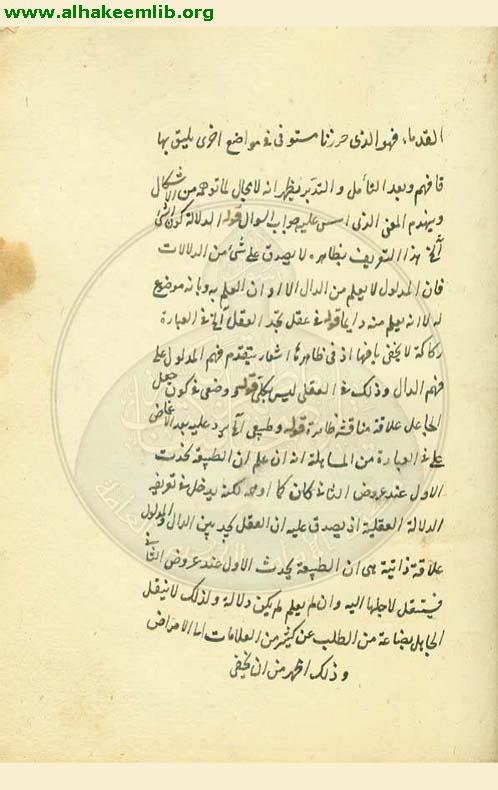 www.alhakeemlib.org
القدماء فهو الذى حررنا مستوفى فى مواضع اخرى يليق بها
فافهم وبعد التأمل والتدبر يظهر انه لا مجال لما توجه من الاشكال
وينهدم المعنى الذى اسس عليه جواب السوال قوله الدلالة كون الشئ
آه هذا التعريف بظاهره لا يصدق على شئ من الدلالات
فان المدلول لا يعلم من الدال الا اوان العلم به وبانه موضوع
له لا انه يعلم منه دايما قوله عقل يجد العقل آه فى العبارة
ركاكة لا يخفى بافها اذ فى ظاهرها اشعار بتقدم فهم المدلول على
فهم الدال وذلك فى العقلى ليس بكلى قوله وضعى فى كون جعل
الجاعل علاقة مناقشة ظاهرة قوله وطبيعى آه يرد عليه بعد الاغماض
على فى العبارة من المساهلة انه ان علم ان الطبيعة تحدث
الاول عند عروض الثانى كان كما لكنه يدخل فى تعريف
الدلالة العقلية اذ يصدق عليه ان العقل يجد بين الدال والمدلول
علاقة ذاتية هى ان الطبيعة يحدث الاول عند عروض الثانى
فينتقل لاجلها اليه وان لم يعلم لم يكن دلالة ولذلك لا ينتقل
الجاهل بصناعة من الطلب عن كثير من العلامات الى الامراض
وذلك اظهر من ان يخفى